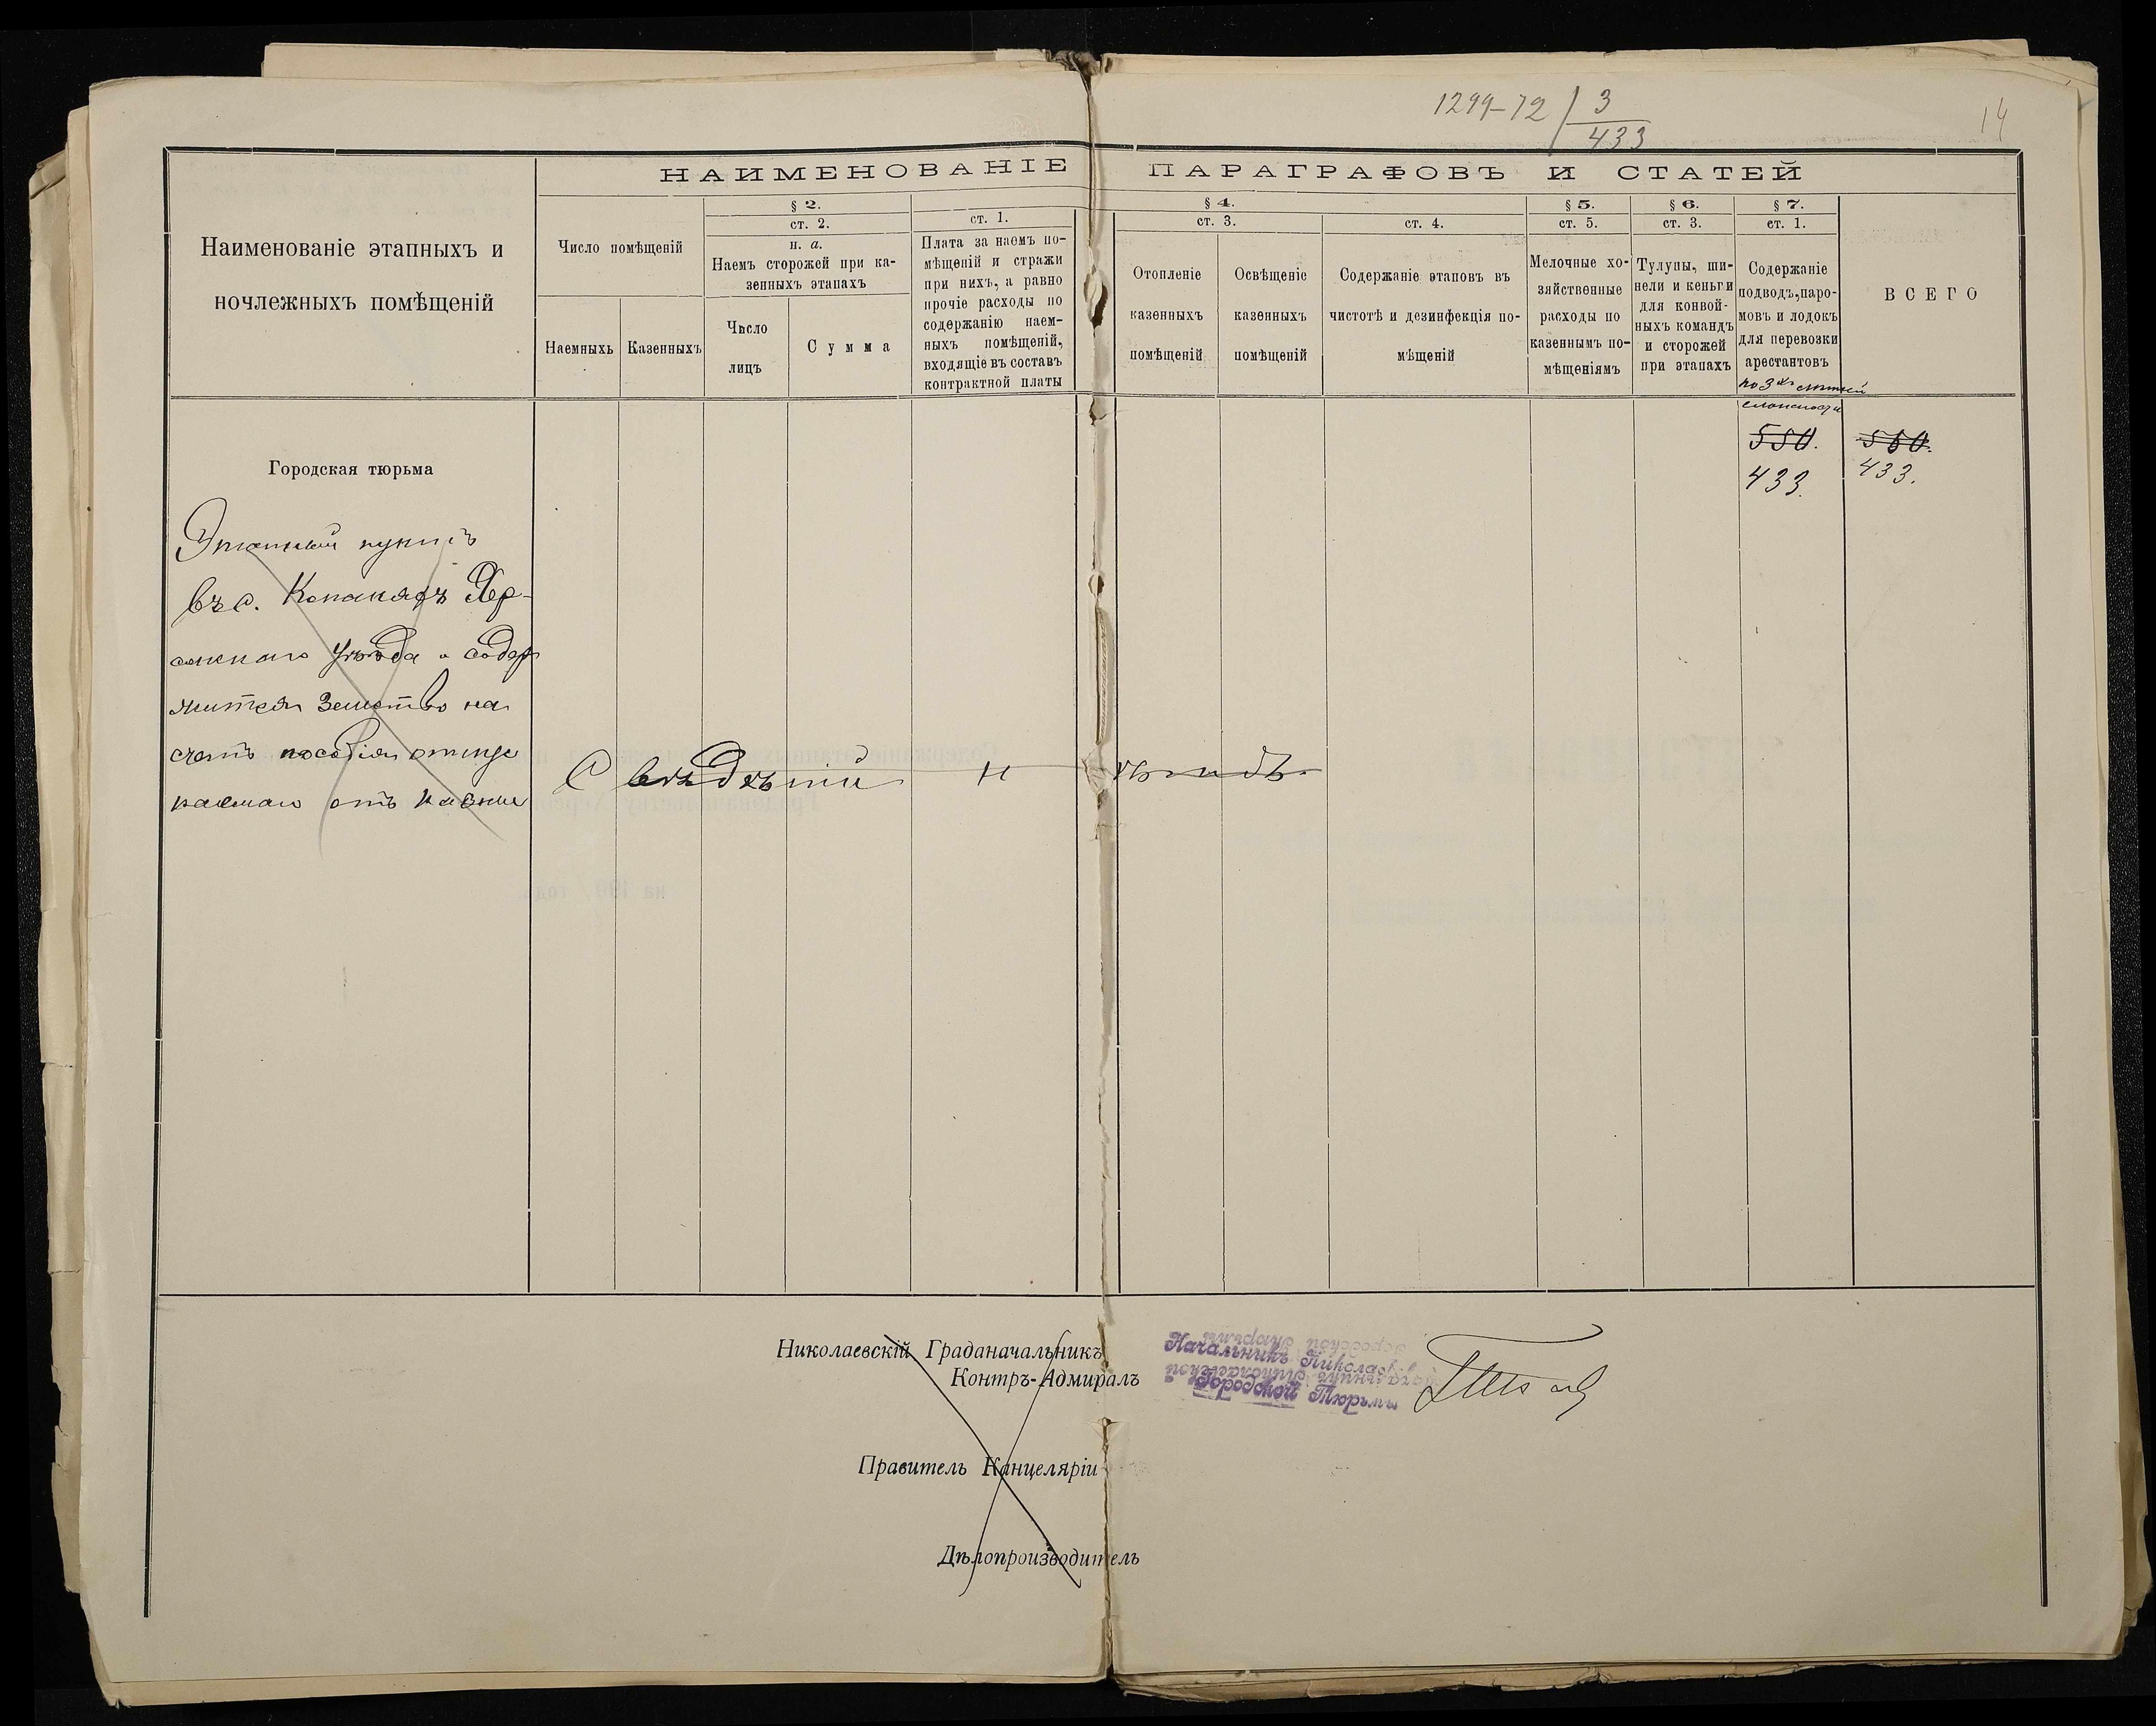 1299-72 | 3
433
14
НАИМЕНОВАНІЕ ПАРАГРАФОВЪ И СТАТЕЙ
Наименованіе этапныхъ и
ночлежныхъ помѣщеній
Число помѣщеній
Наемныхъ
Казенныхъ
§ 2.
ст. 2.
н. а.
Наемъ сторожей при ка-
зенныхъ этапахъ
Число
лицъ
Сумма
§ 4.
ст. 1.
Плата за наемъ по-
мѣщеній и стражи
при нихъ, а равно
прочіе расходы по
содержанію наем-
ныхъ помѣщеній,
входящіе въ составъ
контрактной платы
ст. 3.
Отопленіе
казенныхъ
помѣщеній
Освѣщеніе
казенныхъ
помѣщеній
ст. 4.
Содержаніе этаповъ въ
чистотѣ и дезинфекція по-
мѣщеній
§ 5.
ст. 5.
Мелочные хо-
зяйственные
расходы по
казеннымъ по-
мѣщеніямъ
§ 6.
ст. 3.
Тулупы, ши-
нели и кеньги
для конвой-
ныхъ командъ
и сторожей
при этапахъ
§ 7.
ст. 1.
Содержаніе
подводъ, паро-
мовъ и лодокъ
для перевозки
арестантовъ
по 3хъ лѣтней
сложности
ВСЕГО
550. 560.
433. 433.
Городская тюрьма
Этапный пунктъ
въ с. Копанахъ Хер-
сонскаго Уѣзда содер
жится Земство на
счетъ пособія отпус
каемаго отъ казны
Свѣдѣній нѣтъ
Николаевскій Граданачальникъ
Контръ-Адмиралъ
Начальникъ Николаевской
Городской Тюрьмы
Правитель Канцеляріи
Дѣлопроизводитель